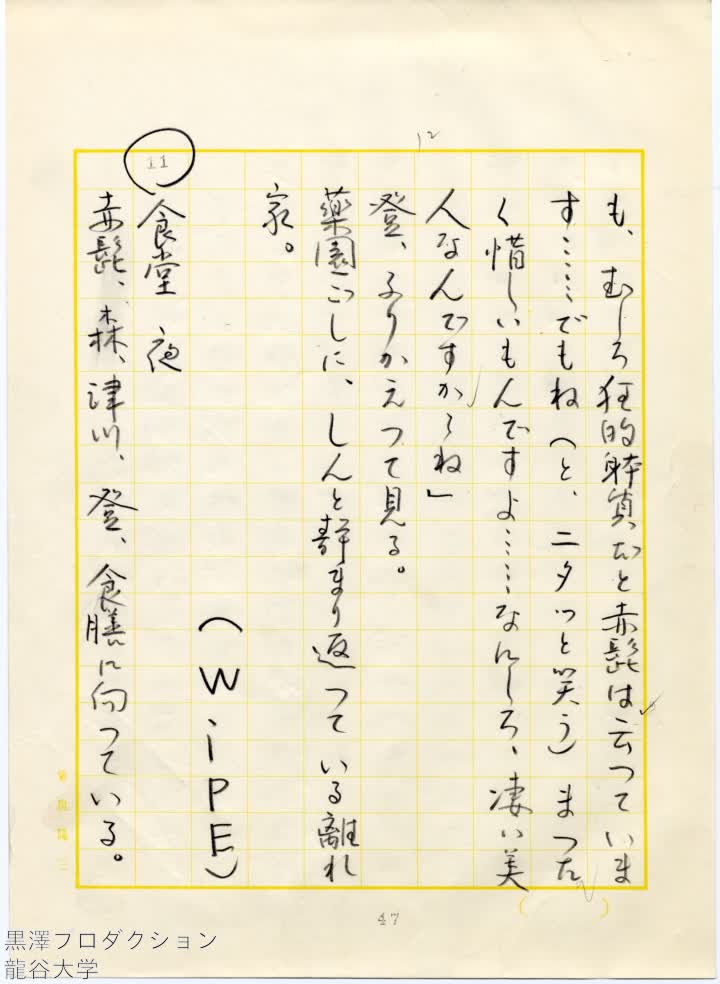 12
も、むしろ狂的躰質だと赤髭は云つていま
す……でもね（と、ニタッと笑う）まつた
く惜しいもんですよ……なにしろ、凄い美
人なんですからね」
登、ふりかえつて見る。
薬園ごしに、しんと静まり返つている離れ
家。
（WiPE）
11
食堂　夜
赤髭、森、津川、登、食膳に向つている。
47
黒澤プロダクション
龍谷大学